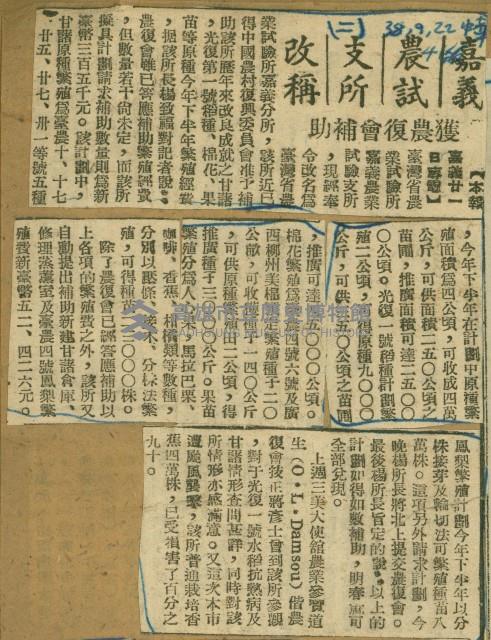 (二)
38，9，22 中華
嘉義
農試
支所
改稱
獲農復會補助
【本報
嘉義廿一
日專電】
臺灣省農
業試驗所
嘉義農業
試驗支所
，現經奉
令改名爲
臺灣省農
業試驗所嘉義分所，該所近已
得中國農村復興委員會准予補
助該所歷年來改良成就之甘藷
，光復第一號稻種、棉花、果
苗等原種今年下半年繁殖經費
，據該所長楊致福對記者說：
農復會雖已答應補助繁殖經費
，但數量若干尙未定，而該所
擬具計劃請求補助數量則爲新
臺幣三百五千元。該計劃中，
甘藷原種繁殖爲臺農十、十七
、廿五、廿七、卅一等號五種
，今年下半年在計劃中原種繁
殖面積爲四公頃，可收成四萬
公斤，可供面積二五〇公頃之
苗圃，推廣面積可達二五〇〇
〇公頃。光復一號稻種計劃繁
殖二公頃，可得原種九〇〇〇
公斤，可供五〇〇公頃之苗圃
，推廣可達一五〇〇〇公頃。
棉花繁殖爲臺農四號六號及廣
西柳州美棉定繁殖種子二〇
公畝，可收種子一四〇公斤
，可供原種繁殖田二公頃，得
推廣種子三二〇〇公斤。果苗
繁殖分爲人心果，馬拉巴栗、
咖啡、香蕉、柑橘類等數種，
分別以壓條、接木、分株法繁
殖，可得種苗一〇〇〇〇株。
除了農復會已經答應補助以
上各項的繁殖費之外，該所又
自動提出補助新建甘藷倉庫、
修理蒸薰室及臺農四號鳳梨繁
殖費新臺幣五二，四二六元。
鳳梨繁殖計劃今年下半年以分
株接芽及輪切法可繁殖種苗八
萬株。這項另外請求計劃，今
晚楊所長將北上提交農復會。
最後楊所長肯定的說：以上的
計劃如得如數補助，明春席可
全部兌現。
上週三美大使館農業參贊道
生(O・L・Damsou)偕農
復會技正蔣彥士曾到該所參觀
，對于光復一號水稻抗熱病及
甘藷情形查問甚詳，同時對該
所情形亦感滿意。又這次本市
遭颱風襲擊，該所普通栽培香
蕉四萬株，已受損害了百分之
九十。